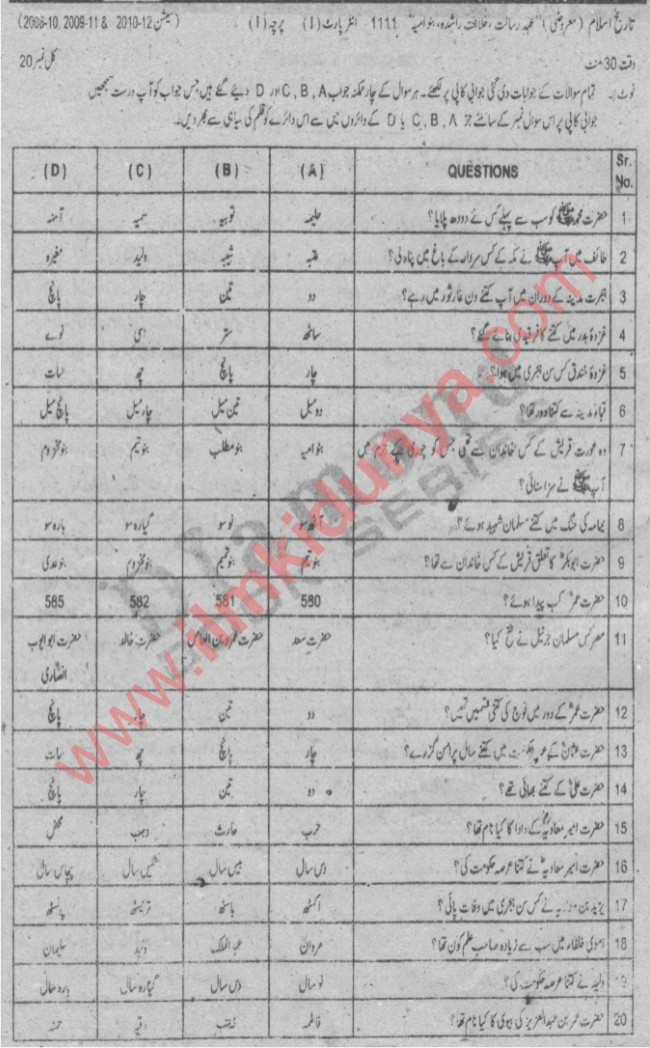 تاریخ اسلام (معروضی) "عہد رسالت، خلافت راشدہ، بنوامیہ" 1111 انٹر پارٹ (I) پرچہ (I) (سیشن 12-2010 & 11-2009 ,10-2006)
وقت 30 منٹ کل نمبر 20
نوٹ: تمام سوالات کے جوابات دی گئی جوابی کاپی پر لکھئے۔ ہر سوال کے چار ممکنہ جواب C, B, A اور D دیئے گئے ہیں جس جواب کو آپ درست سمجھیں
جوابی کاپی پر اس سوال نمبر کے سامنے C, B, A یا D کے دائروں میں سے اس دائرے کو قلم کی سیاہی سے بھر دیں۔
Sr. No. QUESTIONS (A) (B) (C) (D)
1 حضرت محمد ﷺ کو سب سے پہلے کس نے دودھ پلایا؟ حلیمہ ثوبیہ سمیہ آمنہ
2 طائف میں آپ ﷺ نے مکہ کے کس سردار کے باغ میں پناہ لی؟ عتبہ شیبہ ولید مغیرہ
3 ہجرت مدینہ کے دوران میں آپ کتنے دن غار ثور میں رہے؟ دو تین چار پانچ
4 غزوۂ بدر میں کتنے کافر قیدی بنائے گئے؟ ساٹھ ستر اسی نوے
5 غزوۂ خندق کس سن ہجری میں ہوا؟ چار پانچ چھ سات
6 قباء مدینہ سے کتنا دور تھا؟ دو میل تین میل چار میل پانچ میل
7 وہ عورت قریش کے کس خاندان سے تھی جس کو چوری کے جرم میں بنو امیہ بنو مطلب بنو تیم بنو مخزوم
آپ ﷺ نے سزا سنائی؟
8 یمامہ کی جنگ میں کتنے مسلمان شہید ہوئے؟ آٹھ سو نو سو گیارہ سو بارہ سو
9 حضرت ابوبکرؓ کا تعلق قریش کے کس خاندان سے تھا؟ بنو تیم بنو تمیم بنو مخزوم بنو عدی
10 حضرت عمرؓ کب پیدا ہوئے؟ 580 581 582 585
11 مصر کس مسلمان جرنیل نے فتح کیا؟ حضرت سعد حضرت عمرو بن العاص حضرت خالد حضرت ابو ایوب
انصاری
12 حضرت عمرؓ کے دور میں فوج کی کتنی قسمیں تھیں؟ دو تین چار پانچ
13 حضرت عثمانؓ کے عہد حکومت میں کتنے سال پرامن گزرے؟ چار پانچ چھ سات
14 حضرت علیؓ کے کتنے بھائی تھے؟ دو تین چار پانچ
15 حضرت امیر معاویہؓ کے دادا کا کیا نام تھا؟ حرب حارث وہب
16 حضرت امیر معاویہؓ نے کتنا عرصہ حکومت کی؟ دس سال بیس سال تیس سال پچاس سال
17 یزید بن معاویہ نے کس سن ہجری میں وفات پائی؟ اکسٹھ باسٹھ تریسٹھ پینسٹھ
18 اموی خلفاء میں سب سے زیادہ صاحب علم کون تھا؟ مروان عبدالملک ولید سلیمان
19 ولید نے کتنا عرصہ حکومت کی؟ نو سال دس سال گیارہ سال بارہ سال
20 حضرت عمر بن عبدالعزیز کی بیوی کا کیا نام تھا؟ فاطمہ زینب رقیہ حمنہ
www.ilmkidunya.com
SERIES